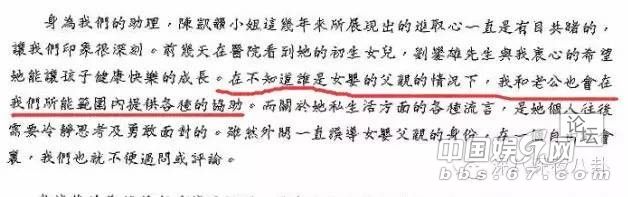 身為我們的助理，陳凱韻小姐這幾年來所展現出的進取心一直是有目共睹的，
讓我們印象很深刻。前幾天在醫院看到她的初生女兒，劉鑾雄先生與我衷心的希望
她能讓孩子健康快樂的成長。在不知道誰是女嬰的父親的情況下，我和老公也會在
我們所能範圍內提供各種的協助。而關於她私生活方面的各種流言，是她個人往後
需要冷靜思考及勇敢面對的。雖然外間一直誤導女嬰父親的身份，在一個自由 會
裏，我們也就不便過問或評論。
论坛
中国娱乐网
八卦